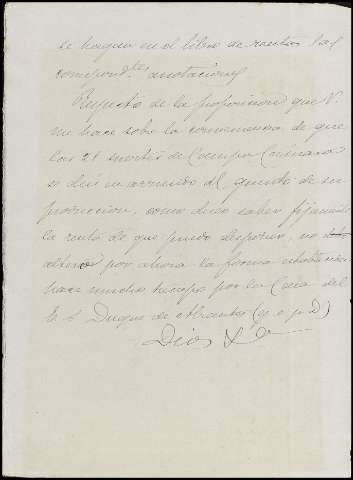 se hagan en el libro de rentas las
correspond.tes anotaciones
Respecto de la proposicion que V.
me hace sobre la conveniencia de que
los 21 de Campo
se den en arriendo al quinto de su
produccion, como deseo saber fijamente
la renta de que puedo disponer, no
altero por ahora la forma establecida
hace mucho tiempo por la Casa del
E. S. Duque de Abrantes (q. e. p. d.)
Dios &a